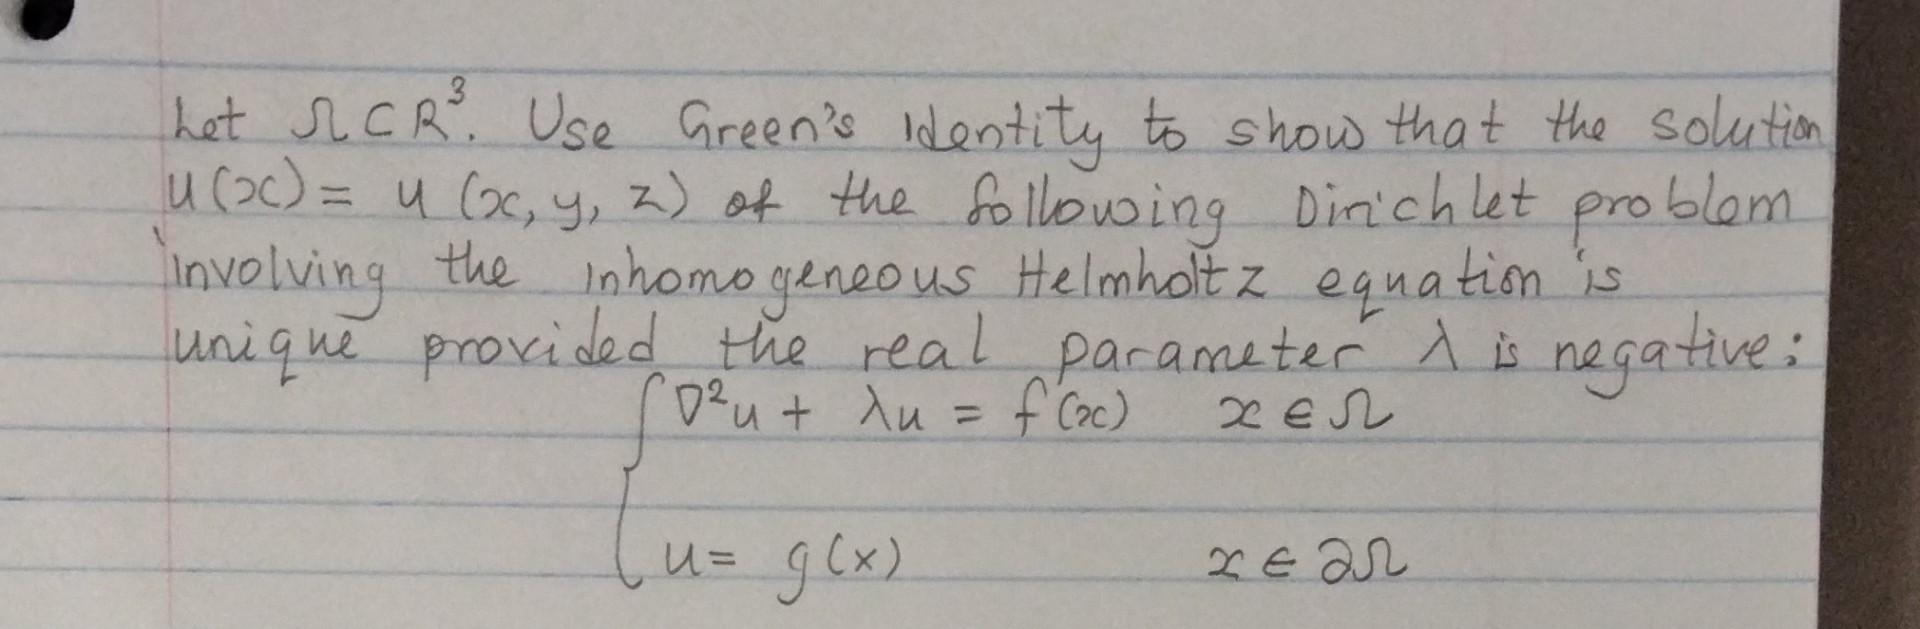 Let Ω ⊂ R³. Use Green's Identity to show that the solution
u(x) = u (x, y, z) of the following Dirichlet problem
involving the inhomogeneous Helmholtz equation is
unique provided the real parameter λ is negative:
{ ∇²u + λu = f(x) x ∈ Ω
u = g(x) x ∈ ∂Ω